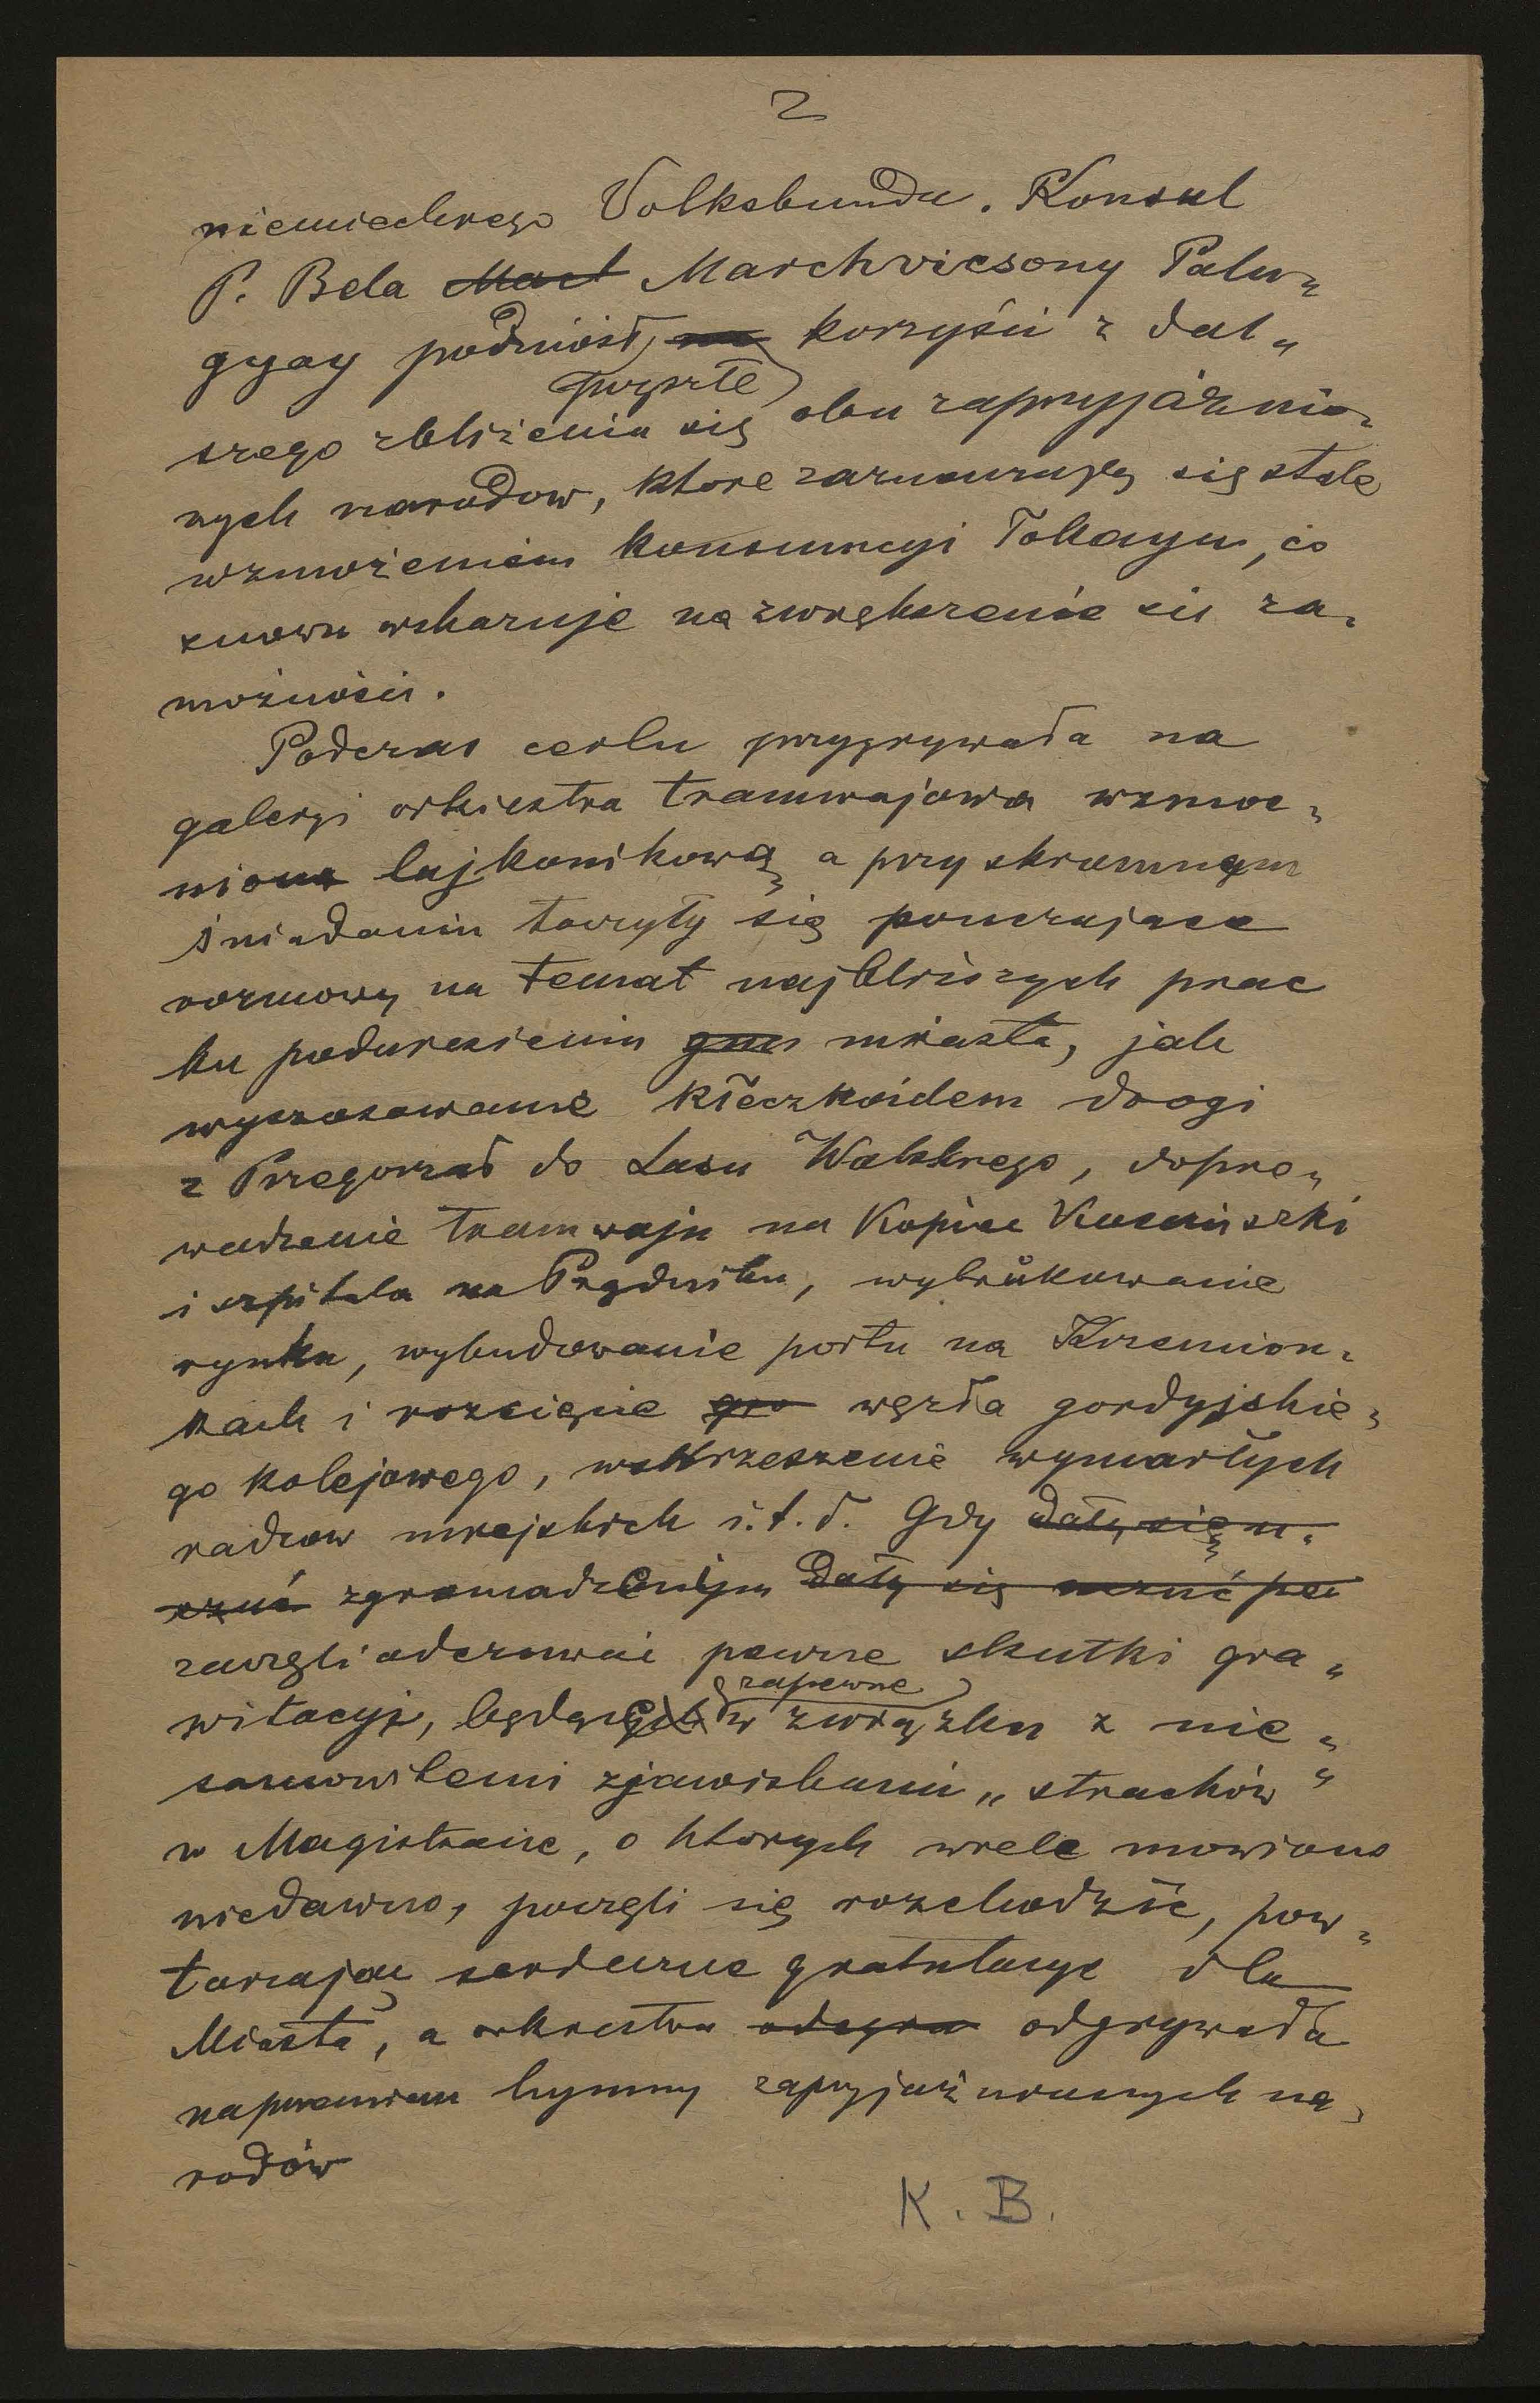 2
niemieckiego Volksbundu. Konsul
P. Bela Mart Marchvicsony Palu„
gyay podniósł, na korzyści z dal„
przyszłe
szego zbliżenia się obu zaprzyjaźnio„
nych narodow, ktore zaznaczają się stale
wzmożeniem konsumcyi Tokayu, co
znowu wskazuje na zwiększenie się za„
możności.
Podczas cerclu przygrywała na
galeryi orkiestra tramwajowa wzmoc„
niona lajkonikową, a przy skromnym
śniadaniu toczyły się pouczające
rozmowy na temat najbliższych prac
ku podniesieniu gm miasta, jak
wyszosowanie kłeczkoidem drogi
z Przegorzał do Lasu Wolskiego, dopro„
wadzenie tramwaju na Kopiec Kościuszki
i szpitala na Prądniku, wybrukowanie
rynku, wybudowanie portu na Krzemion„
kach i rozcięcie go węzła gordyjskie„
go kolejowego, wskrzeszenie wymarłych
radców miejskich i.t.d. Gdy dały się u„
czuć zgromadzeni dały się uczuć pe
zaczęli odczuwać pewne skutki gra„
zapewne
witacyi, będące w związku z nie„
samowitemi zjawiskami „strachów“
w Magistracie, o ktorych wiele mowiono
niedawno, poczęli się rozchodzić, pow„
tarzając serdeczne gratulacye dla
Miasta, a orkiestra odegra odgrywała
naprzemian hymny zaprzyjaźnionych na„
rodów
K. B.